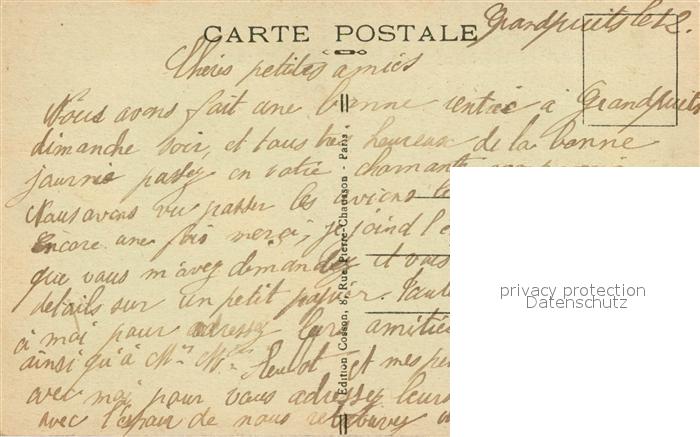 Grandpuits le 12.
CARTE POSTALE
Chères petites amies
Nous avons fait une bonne rentrée à Grandpuits
dimanche soir, et tous très heureux de la bonne
journée passée en votre charmante
Nous avons vu passer les avions le
Encore une fois merci, je joind l'
que vous m'avez demandez et vous
details sur un petit papier.
à moi pour adressez leurs amitiés
ainsi qu'à Mr Mme et mes
avec moi pour vous adressez leurs
avec l'espoir de nous
Edition Cosson, 8, Rue Pierre-Chausson - Paris.
privacy protection
Datenschutz